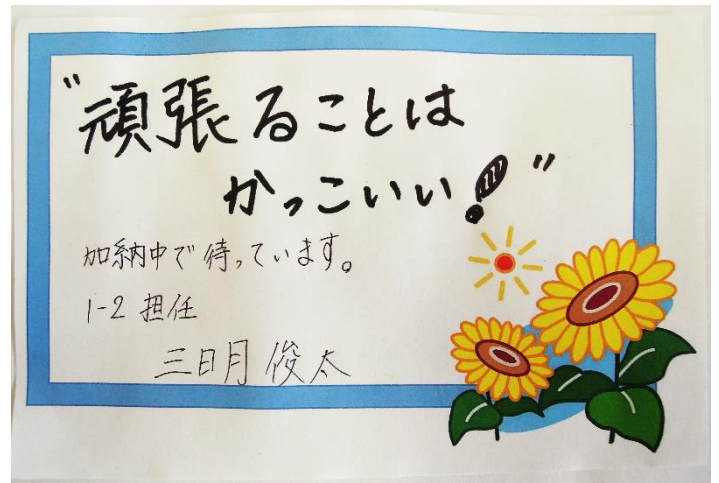 "頑張ることは
かっこいい!"
加納中で待っています。
1-2 担任
三日月 俊太